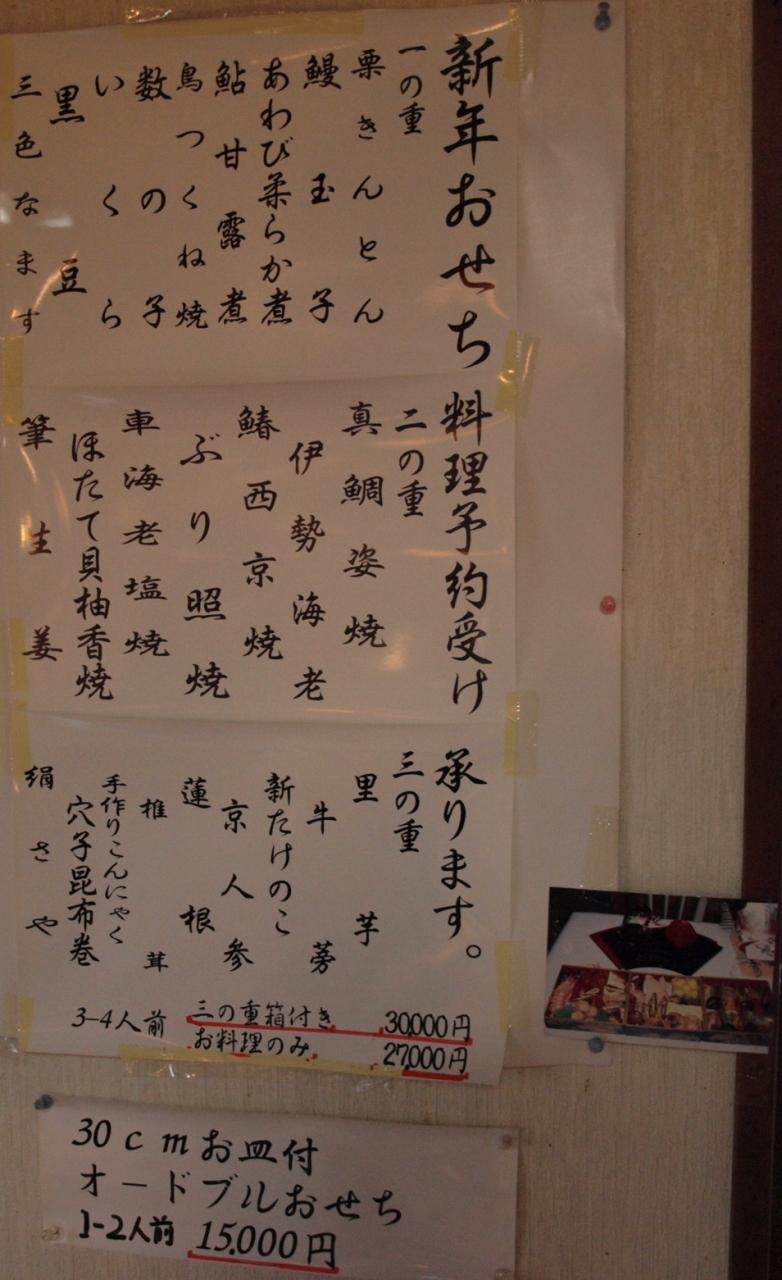 新年おせち料理予約受け承ります。
一の重
栗きんとん
鰻玉子
あわび柔らか煮
鮎甘露煮
鳥つくね焼
数の子
いくら
黒豆
三色なます
二の重
真鯛姿焼
伊勢海老
鰆西京焼
ぶり照焼
車海老塩焼
ほたて貝柚香焼
筆生姜
三の重
里芋
牛蒡
新たけのこ
京人参
蓮根
椎茸
手作りこんにゃく
穴子昆布巻
絹さや
3-4人前 三の重箱付き 30,000円
お料理のみ 27,000円
30cmお皿付
オードブルおせち
1-2人前 15,000円